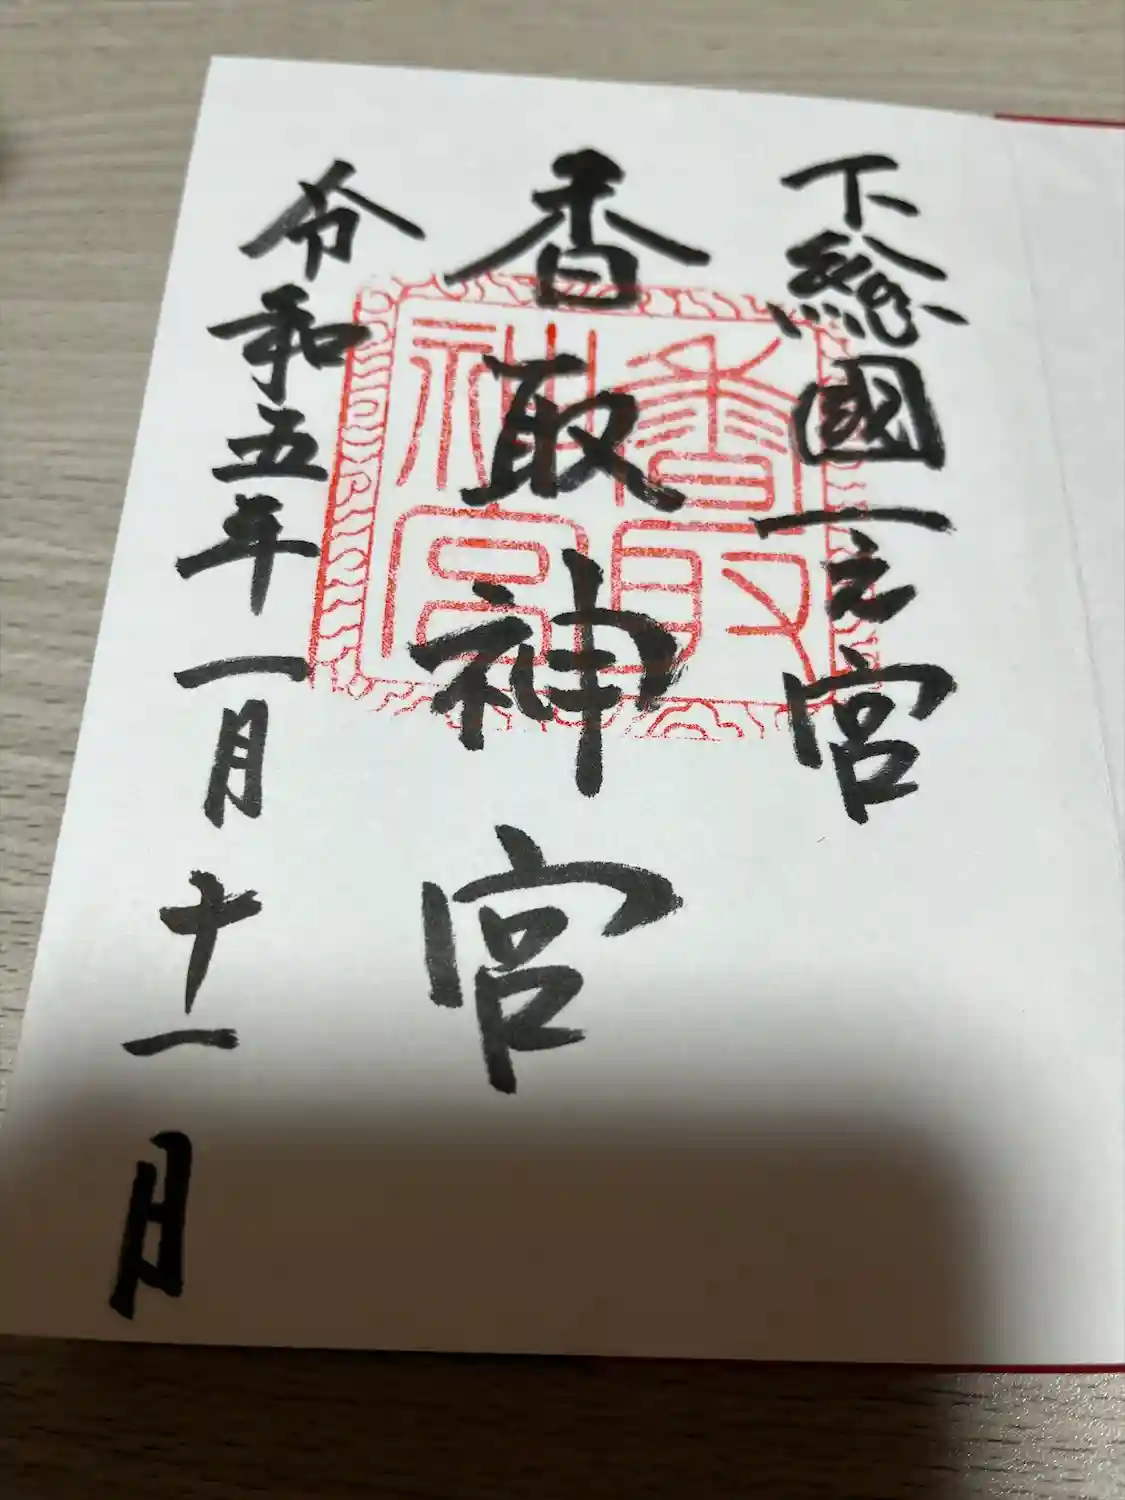 下総國一之宮
香取神宮
令和五年一月十一日
香取
神宮